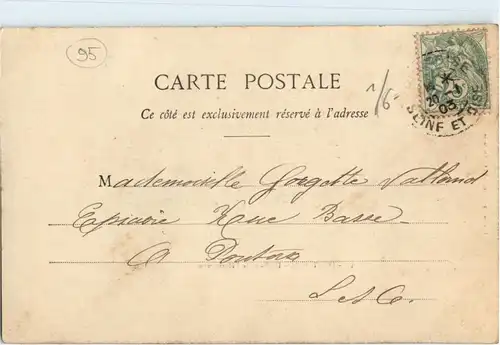 95
CARTE POSTALE
Ce côté est exclusivement réservé à l'adresse
1/6
Mademoiselle Georgette
Epicerie Rue Basse
A Pontoise
S. et O.
20
03
SEINE ET OISE